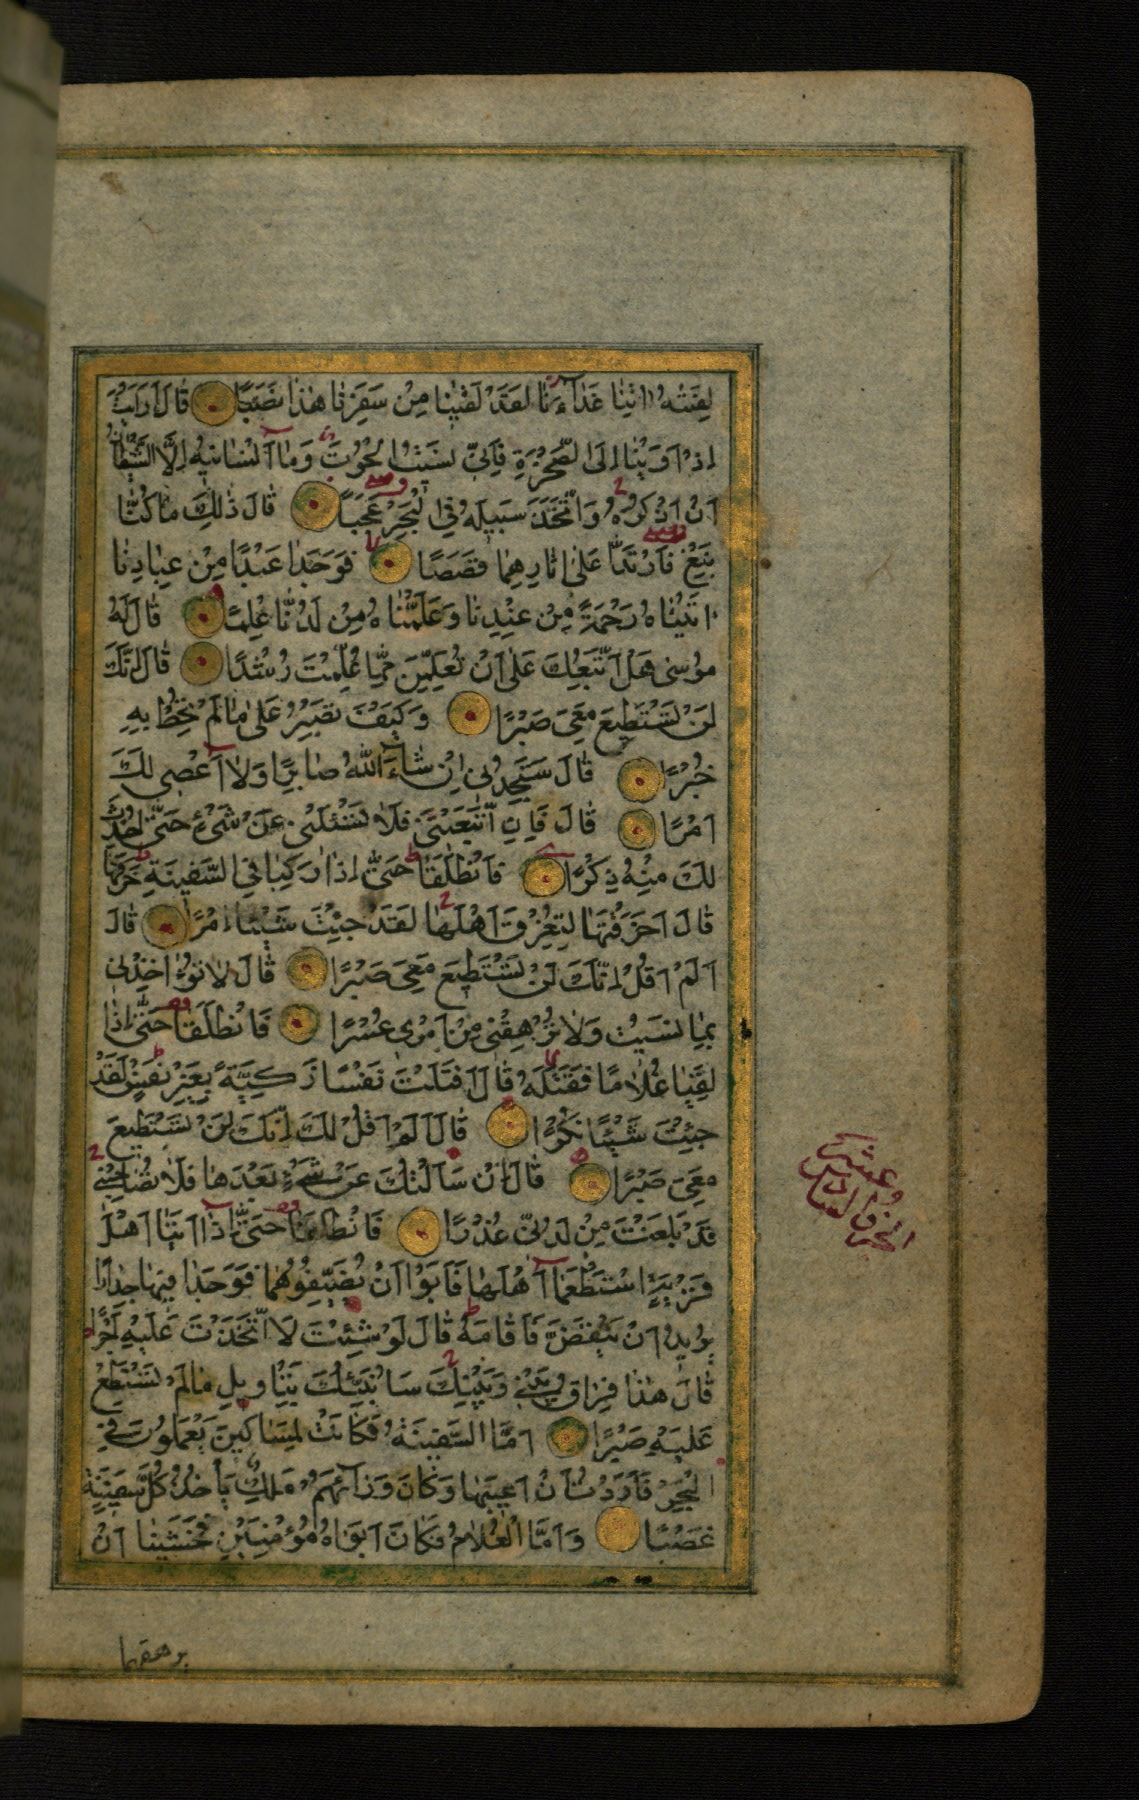 لِفَتٰیهُ اٰتِنَا غَدَآءَنَا لَقَدْ لَقِینَا مِنْ سَفَرِنَا هٰذَا نَصَبًا قَالَ اَرَاَیْتَ
اِذْ اَوَیْنَا اِلَی الصَّخْرَةِ فَاِنّی نَسِیتُ الْحُوتَ وَمَا اَنْسَانِیهُ اِلَّا الشَّیْطَانُ
اَنْ اَذْکُرَهُ وَاتَّخَذَ سَبِیلَهُ فِی الْبَحْرِ عَجَبًا قَالَ ذٰلِكَ مَا کُنَّا
نَبْغِ فَارْتَدَّا عَلٰی اٰثَارِهِمَا قَصَصًا فَوَجَدَا عَبْدًا مِنْ عِبَادِنَا
اٰتَیْنَاهُ رَحْمَةً مِنْ عِنْدِنَا وَعَلَّمْنَاهُ مِنْ لَدُنَّا عِلْمًا قَالَ لَهُ
مُوسٰی هَلْ اَتَّبِعُكَ عَلٰی اَنْ تُعَلِّمَنِ مِمَّا عُلِّمْتَ رُشْدًا قَالَ اِنَّكَ
لَنْ تَسْتَطِیعَ مَعِیَ صَبْرًا وَکَیْفَ تَصْبِرُ عَلٰی مَا لَمْ تُحِطْ بِهِ
خُبْرًا قَالَ سَتَجِدُنی اِنْ شَاءَ اللّٰهُ صَابِرًا وَلَا اَعْصی لَكَ
اَمْرًا قَالَ فَاِنِ اتَّبَعْتَنی فَلَا تَسْئَلْنی عَنْ شَیْءٍ حَتّٰی اُحْدِثَ
لَكَ مِنْهُ ذِکْرًا فَانْطَلَقَا حَتّٰی اِذَا رَکِبَا فِی السَّفِینَةِ خَرَقَهَا
قَالَ اَخَرَقْتَهَا لِتُغْرِقَ اَهْلَهَا لَقَدْ جِئْتَ شَیْئًا اِمْرًا قَالَ
اَلَمْ اَقُلْ اِنَّكَ لَنْ تَسْتَطِیعَ مَعِیَ صَبْرًا قَالَ لَا تُؤَاخِذْنی
بِمَا نَسِیتُ وَلَا تُرْهِقْنی مِنْ اَمْری عُسْرًا فَانْطَلَقَا حَتّٰی اِذَا
لَقِیَا غُلَامًا فَقَتَلَهُ قَالَ اَقَتَلْتَ نَفْسًا زَکِیَّةً بِغَیْرِ نَفْسٍ لَقَدْ
جِئْتَ شَیْئًا نُکْرًا قَالَ اَلَمْ اَقُلْ لَكَ اِنَّكَ لَنْ تَسْتَطِیعَ
مَعِیَ صَبْرًا قَالَ اِنْ سَاَلْتُكَ عَنْ شَیْءٍ بَعْدَهَا فَلَا تُصَاحِبْنی
قَدْ بَلَغْتَ مِنْ لَدُنّی عُذْرًا فَانْطَلَقَا حَتّٰی اِذَا اَتَیَا اَهْلَ
قَرْیَةٍ اسْتَطْعَمَا اَهْلَهَا فَاَبَوْا اَنْ یُضَیِّفُوهُمَا فَوَجَدَا فِیهَا جِدَارًا
یُرِیدُ اَنْ یَنْقَضَّ فَاَقَامَهُ قَالَ لَوْ شِئْتَ لَاتَّخَذْتَ عَلَیْهِ اَجْرًا
قَالَ هٰذَا فِرَاقُ بَیْنی وَبَیْنِكَ سَاُنَبِّئُكَ بِتَاْوِیلِ مَا لَمْ تَسْتَطِعْ
عَلَیْهِ صَبْرًا اَمَّا السَّفِینَةُ فَکَانَتْ لِمَسَاکِینَ یَعْمَلُونَ فِی
الْبَحْرِ فَاَرَدْتُ اَنْ اَعِیبَهَا وَکَانَ وَرَائَهُمْ مَلِكٌ یَاْخُذُ کُلَّ سَفِینَةٍ
غَصْبًا وَاَمَّا الْغُلَامُ فَکَانَ اَبَوَاهُ مُؤْمِنَیْنِ فَخَشِینَا اَنْ
یرهقهما
عشر
الجزؤ السادس